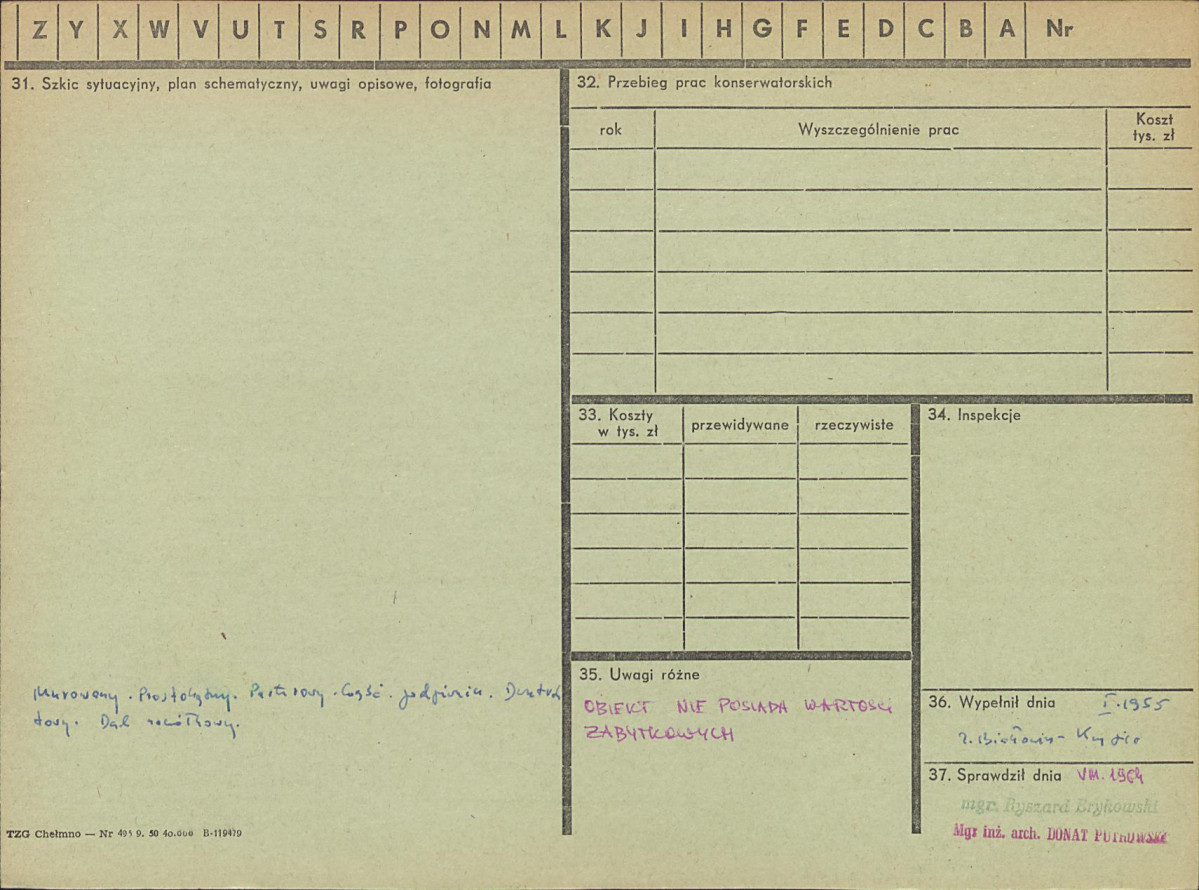 Z Y X W V U T S R P O N M L K J I H G F E D C B A Nr
31. Szkic sytuacyjny, plan schematyczny, uwagi opisowe, fotografia
32. Przebieg prac konserwatorskich
rok
Wyszczególnienie prac
Koszt
tys. zł
33. Koszty
w tys. zł
przewidywane
rzeczywiste
34. Inspekcje
Murowany. Prostokątny. Parterowy. Część
towy. Dach
35. Uwagi różne
OBIEKT NIE POSIADA WARTOŚCI
ZABYTKOWYCH
36. Wypełnił dnia I.1955
37. Sprawdził dnia VIII. 1964
mgr. Ryszard Brykowski
Mgr inż. arch. DONAT
TZG Chełmno — Nr 9. 50 40.000 B-119479